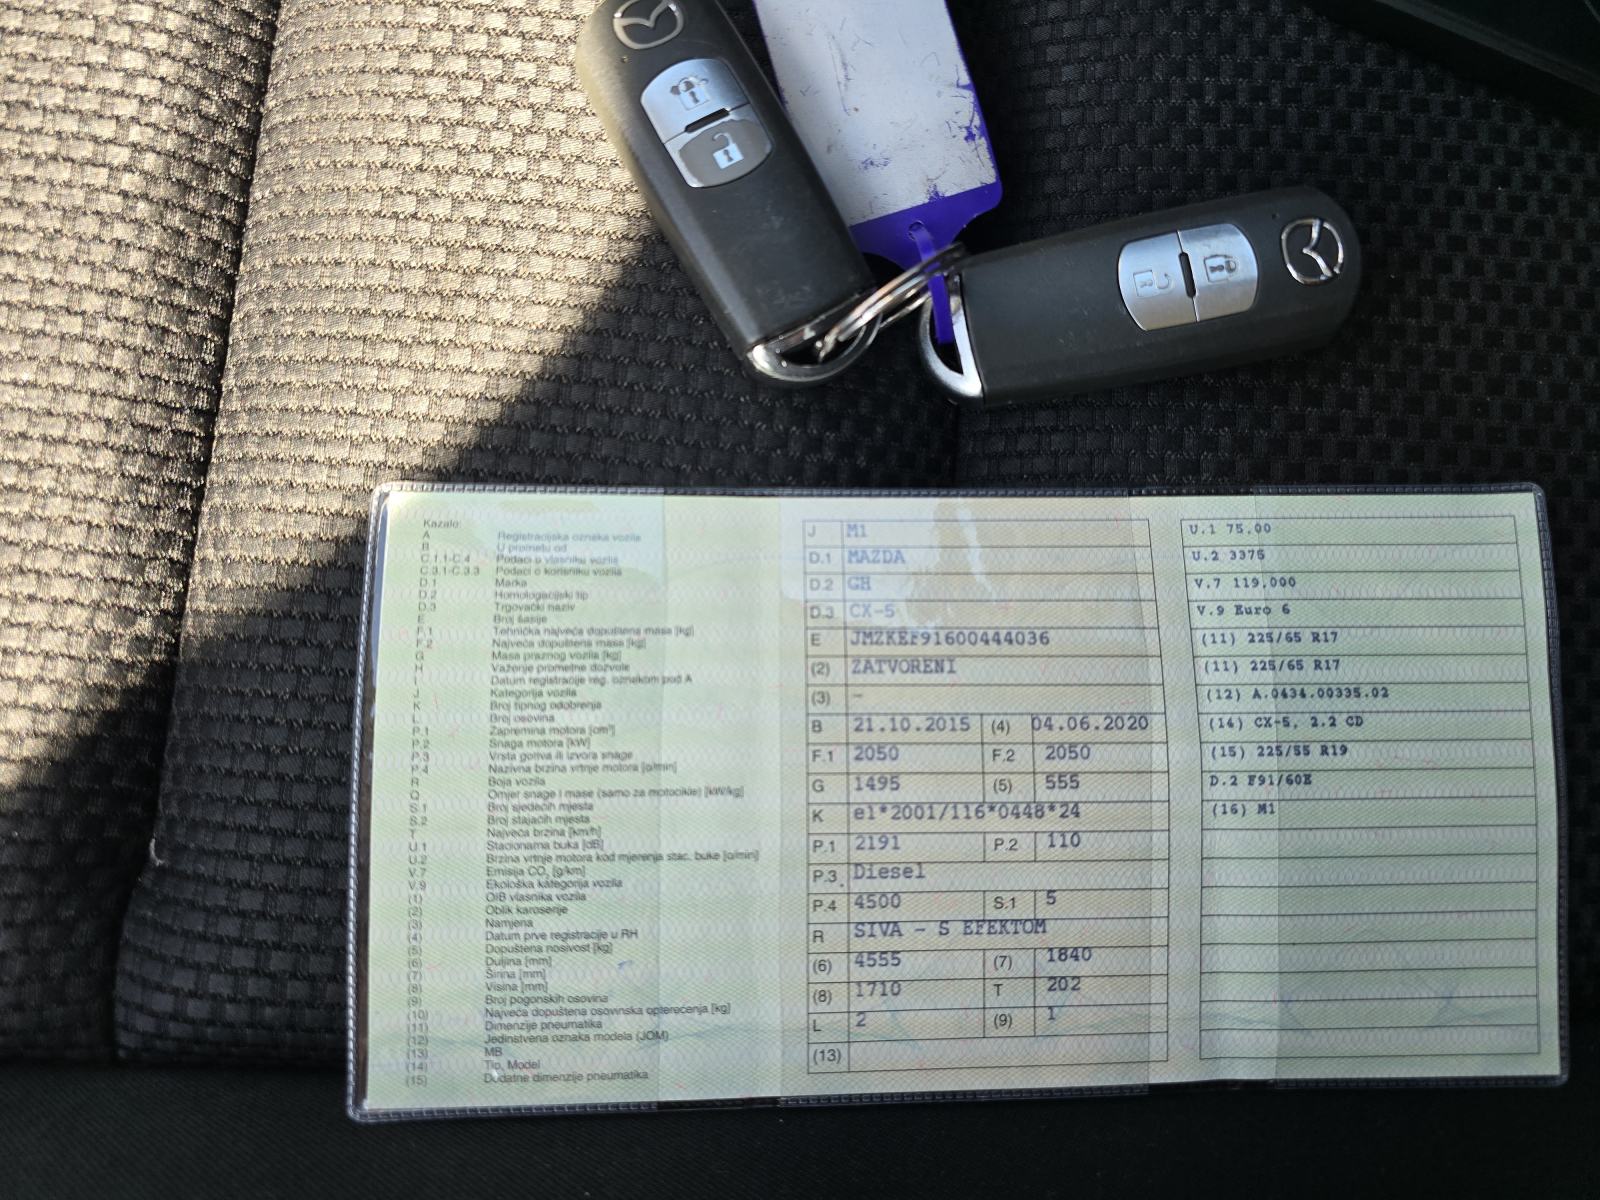 Kazalo:
A Registracijska oznaka vozila
B U prometu od
C.1.1-C.4 Podaci o vlasniku vozila
C.3.1-C.3.3 Podaci o korisniku vozila
D.1 Marka
D.2 Homologacijski tip
D.3 Trgovački naziv
E Broj šasije
F.1 Tehnička najveća dopuštena masa [kg]
F.2 Najveća dopuštena masa [kg]
G Masa praznog vozila [kg]
H Važenje prometne dozvole
I Datum registracije reg. oznakom pod A
J Kategorija vozila
K Broj tipnog odobrenja
L Broj osovina
P.1 Zapremina motora [cm³]
P.2 Snaga motora [kW]
P.3 Vrsta goriva ili izvora snage
P.4 Nazivna brzina vrtnje motora [o/min]
R Boja vozila
Q Omjer snage i mase (samo za motocikle) [kW/kg]
S.1 Broj sjedećih mjesta
S.2 Broj stajaćih mjesta
T Najveća brzina [km/h]
U.1 Stacionarna buka [dB]
U.2 Brzina vrtnje motora kod mjerenja stac. buke [o/min]
V.7 Emisija CO₂ [g/km]
V.9 Ekološka kategorija vozila
(1) OIB vlasnika vozila
(2) Oblik karoserije
(3) Namjena
(4) Datum prve registracije u RH
(5) Dopuštena nosivost [kg]
(6) Duljina [mm]
(7) Širina [mm]
(8) Visina [mm]
(9) Broj pogonskih osovina
(10) Najveća dopuštena osovinska opterećenja [kg]
(11) Dimenzije pneumatika
(12) Jedinstvena oznaka modela (JOM)
(13) MB
(14) Tip, Model
(15) Dodatne dimenzije pneumatika
J M1
D.1 MAZDA
D.2 GH
D.3 CX-5
E JMZKEF91600444036
(2) ZATVORENI
(3) –
B 21.10.2015 (4) 04.06.2020
F.1 2050 F.2 2050
G 1495 (5) 555
K e1*2001/116*0448*24
P.1 2191 P.2 110
P.3 Diesel
P.4 4500 S.1 5
R SIVA – S EFEKTOM
(6) 4555 (7) 1840
(8) 1710 T 202
L 2 (9) 1
(13)
U.1 75.00
U.2 3375
V.7 119.000
V.9 Euro 6
(11) 225/65 R17
(11) 225/65 R17
(12) A.0434.00335.02
(14) CX-5, 2.2 CD
(15) 225/55 R19
D.2 F91/60E
(16) M1